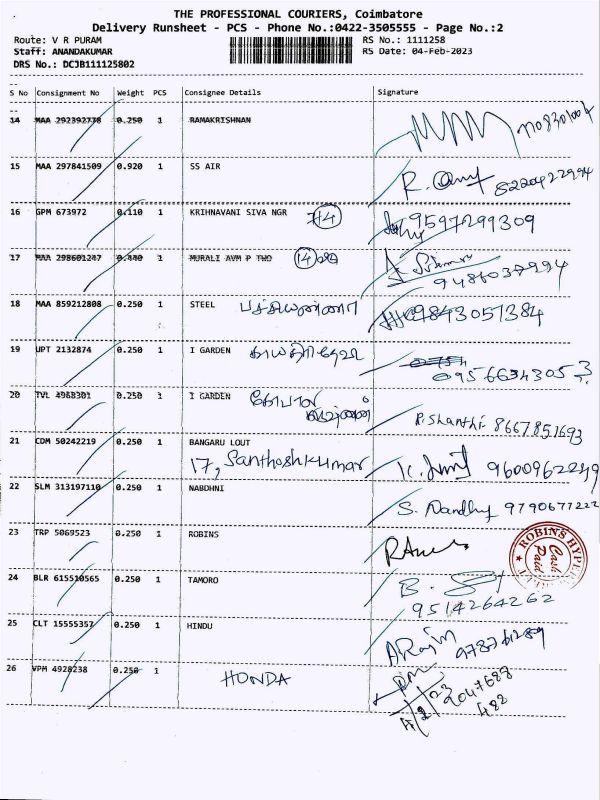 THE PROFESSIONAL COURIERS, Coimbatore
Delivery Runsheet - PCS - Phone No.:0422-3505555 - Page No.:2
Route: V R PURAM RS No.: 1111258
Staff: ANANDAKUMAR RS Date: 04-Feb-2023
DRS No.: DCJB111125802
S No Consignment No Weight PCS Consignee Details Signature
14 MAA 292392738 0.250 1 RAMAKRISHNAN
15 MAA 297841509 0.920 1 SS AIR 8220422994
16 GPM 673972 0.110 1 KRIHNAVANI SIVA NGR 714 9597299309
17 MAA 298601247 0.440 1 MURALI AVM P TWO 9486037994
18 MAA 859212808 0.250 1 STEEL 9843051384
19 UPT 2132874 0.250 1 I GARDEN
20 TVL 4968301 0.250 1 I GARDEN P. Shanthi 8667851693
21 CDM 50242219 0.250 1 BANGARU LOUT
17, Santhoshkumar 9600962249
22 SLM 313197110 0.250 1 NABDHNI S. Nandhy 9790677222
23 TRP 5069523 0.250 1 ROBINS
ROBINS HYPER
Cash Paid
24 BLR 615510565 0.250 1 TAMORO
9514264262
25 CLT 15555357 0.250 1 HINDU
26 VPM 4928238 0.250 1 HONDA